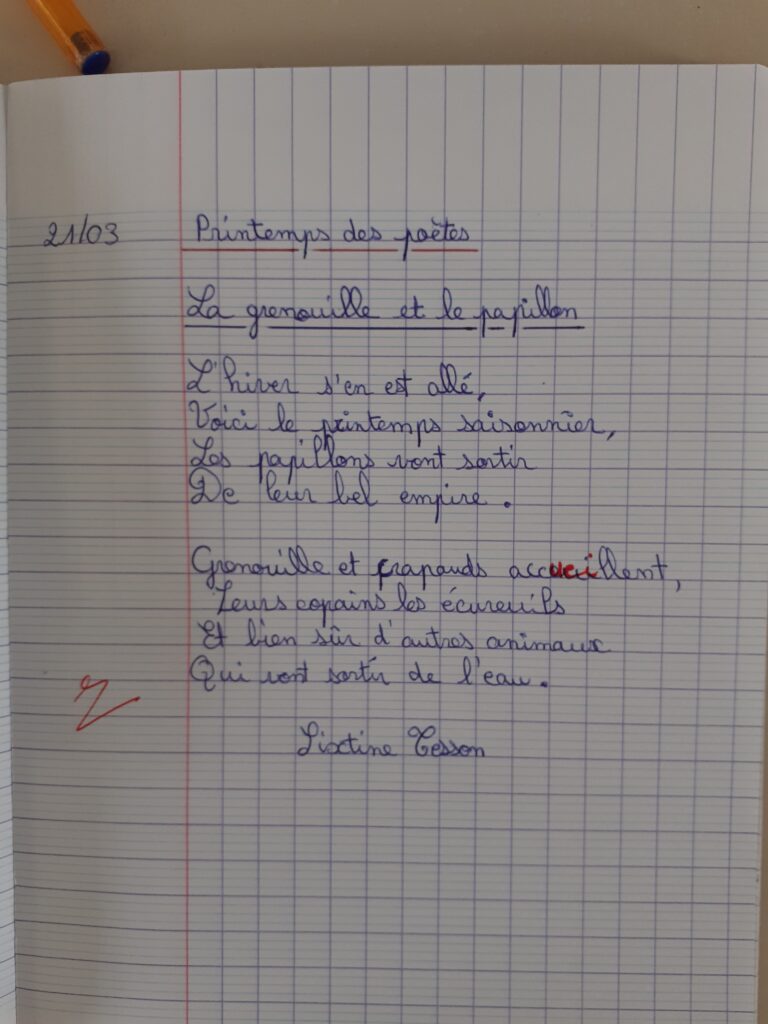 21/03 Printemps des poètes
La grenouille et le papillon
L'hiver s'en est allé,
Voici le printemps saisonnier,
Les papillons vont sortir
De leur bel empire.
Grenouille et crapauds accueillent,
Leurs copains les écureuils
Et bien sûr d'autres animaux
Qui vont sortir de l'eau.
Sixtine Tesson